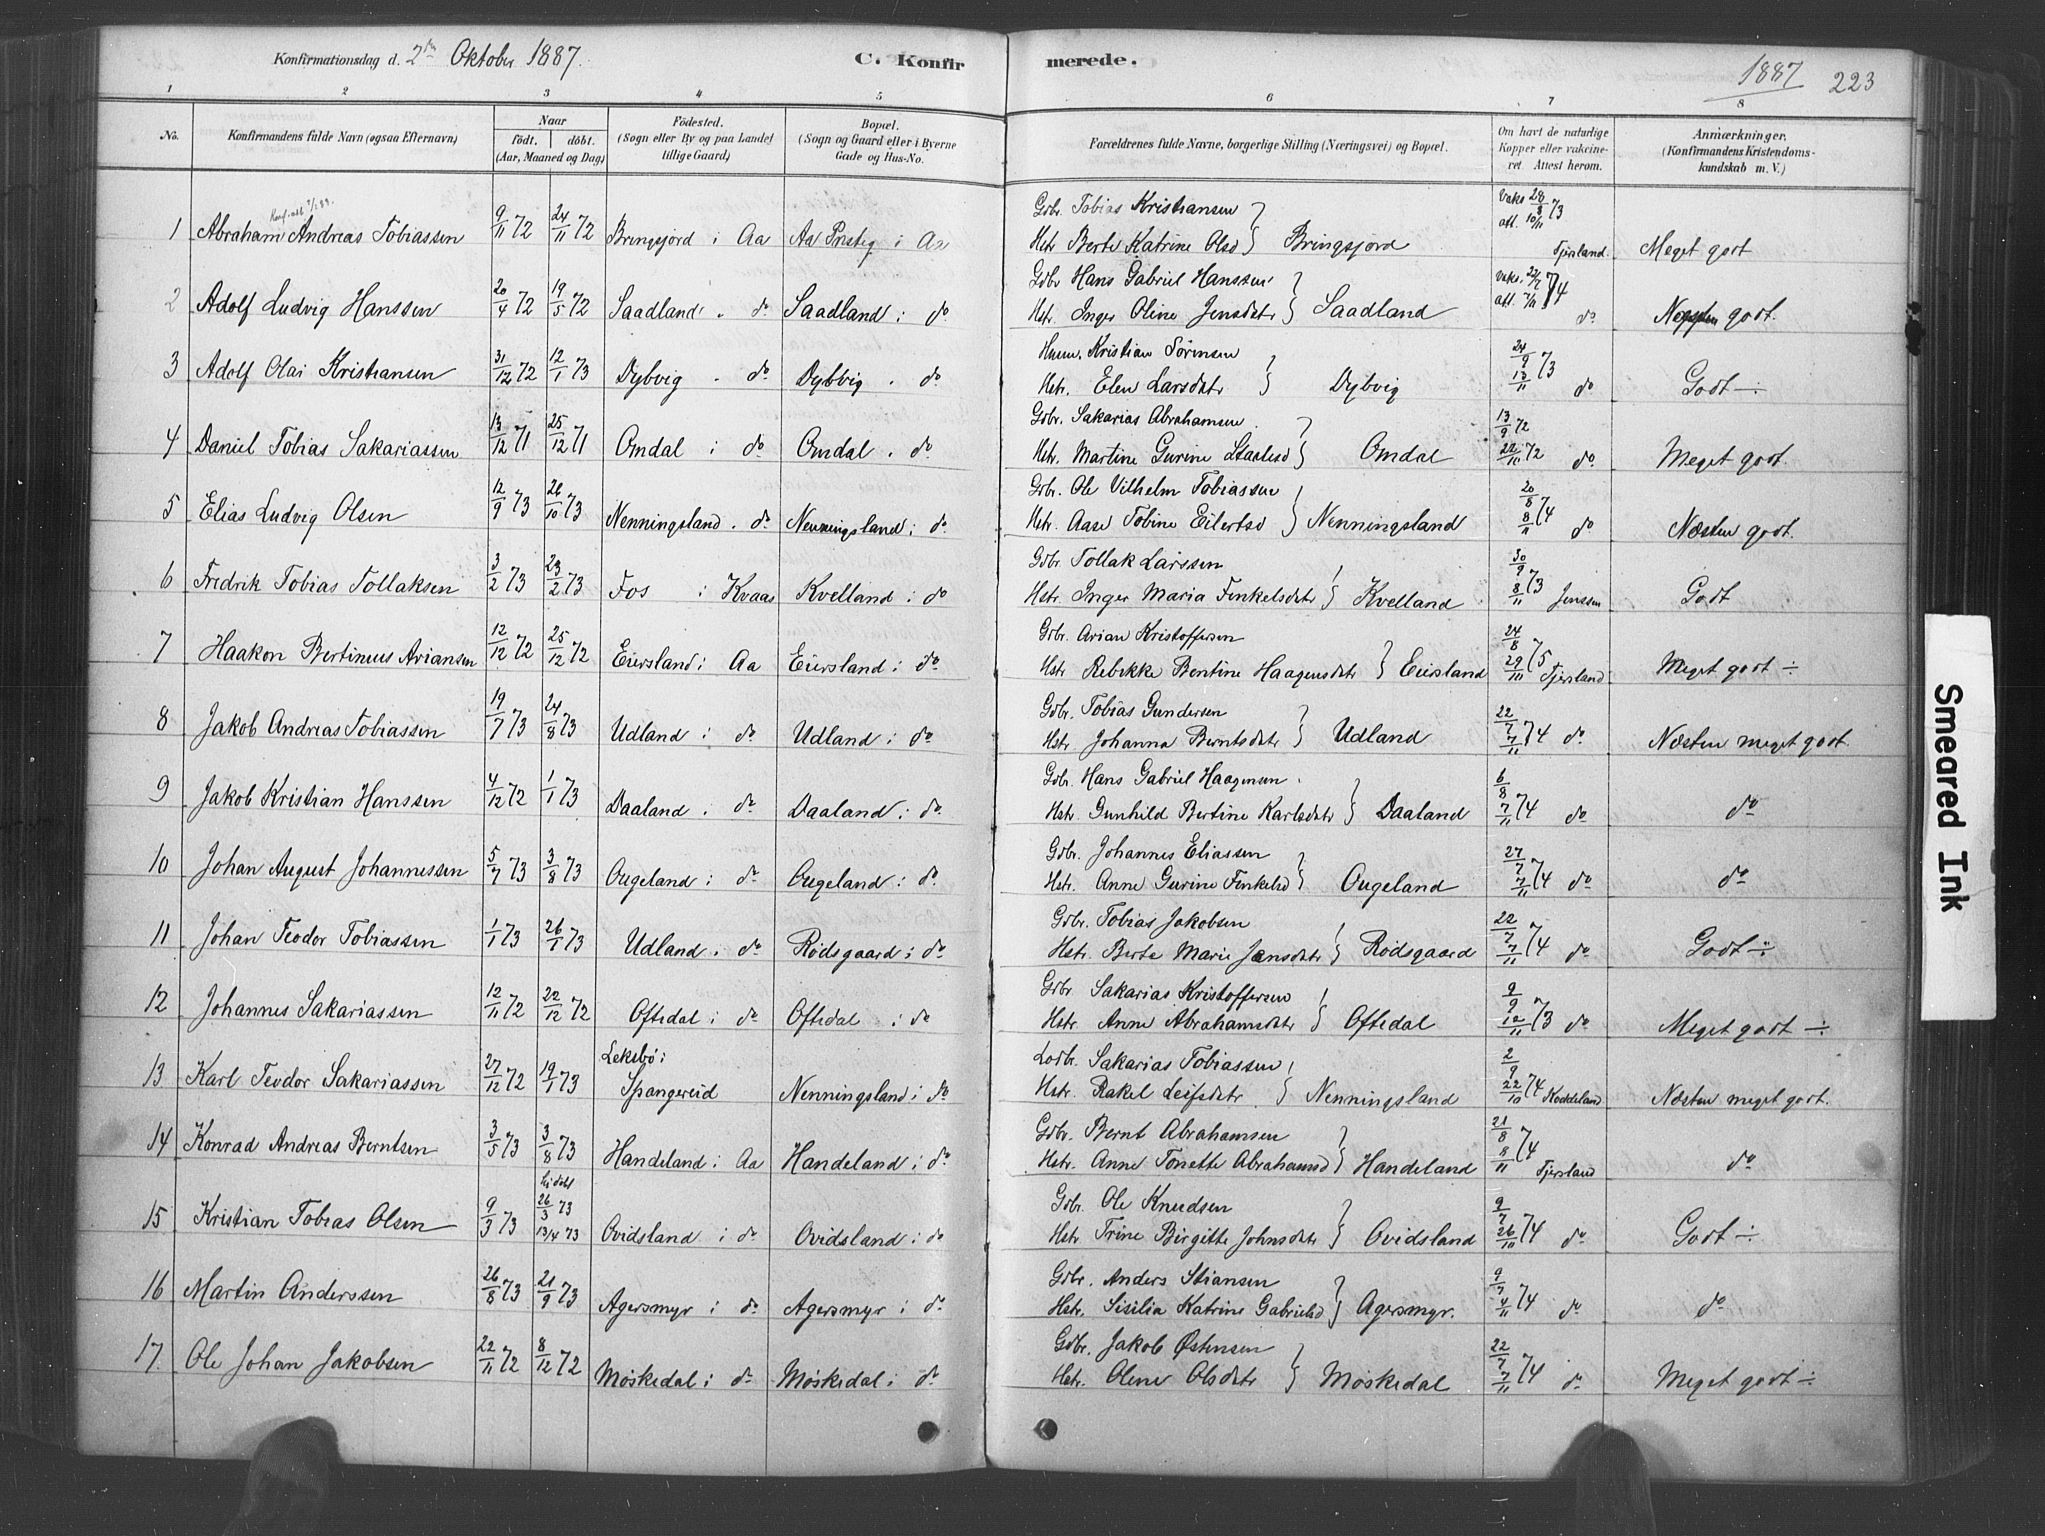 Konfirmationsdag d. 2den Oktober 1887.
C. Konfirmerede.
1887 223
1 2 3 4 5 6 7 8
No. Konfirmandens fulde Navn (ogsaa Efternavn) Naar født. døbt. (Aar, Maaned og Dag) Fødested. (Sogn eller By og paa Landet tillige Gaard) Bopæl. (Sogn og Gaard eller i Byerne Gade og Hus-No. Forældrenes fulde Navne, borgerlige Stilling (Næringsvei) og Bopæl. Om havt de naturlige Kopper eller vakcineret. Attest herom. Anmærkninger. (Konfirmandens Kristendomskundskab m. V.)
1 Abraham Andreas Tobiassen 9/11 72 24/11 72 Bringsjord i Aa Aa i Aa Gdbr. Tobias Kristiansen Vaks 28/8 73
Hstr Berte Katrine Olsd } Bringsjord att. 10/11 Tjersland Meget godt
2 Adolf Ludvig Hanssen 20/4 72 19/5 72 Saadland " do Saadland i do Gdbr Hans Gabriel Hanssen Vaks. 74
Hstr. Inger Oline Jensdatr } Saadland att. 7/11 do godt.
3 Adolf Olai Kristiansen 31/12 72 12/1 73 Dybvig " do Dybvig " do Husm. Kristian Sørensen 24/9 73
Hstr. Elen Larsdatr } Dybvig 10/11 do Godt ÷
4 Daniel Tobias Sakariassen 13/12 71 25/12 71 Omdal i do Omdal " do Gdbr. Sakarias Abrahamsen 13/9 72
Hstr. Martine Gurine Staalesd } Omdal 22/10 72 do Meget godt.
5 Elias Ludvig Olsen 12/9 73 26/10 73 Nenningsland " do Nenningsland i do Gdbr. Ole Vilhelm Tobiassen 20/8 74
Hstr. Aase Tobine Eilertsd } Nenningsland 8/11 do Næsten godt.
6 Fredrik Tobias Tollaksen 3/2 73 23/2 73 Fos i Kvaas Kvelland i do Gdbr. Tollak Larssen 30/9 73
Hstr. Inger Maria Finkelsdatr } Kvelland 8/11 Jenssen Godt
7 Haakon Bertineus Ariansen 12/12 72 25/12 72 Eiersland i Aa Eiersland i do Gdbr. Arian Kristoffersen 24/8 75
Hstr Rebekke Bentine Haagensdatr } Eiersland Tjersland Meget godt ÷
8 Jakob Andreas Tobiassen 19/7 73 24/8 73 Udland i do Udland i do Gdbr. Tobias Gundersen 22/7 74
Hstr Johanna Berntsdatr } Udland 7/11 do Næsten meget godt.
9 Jakob Kristian Hanssen 4/12 72 1/1 73 Daaland i do Daaland i do Gdbr. Hans Gabriel Haagensen 6/8 74
Hstr. Gunhild Bertine Karlsdatr } Daaland 7/11 do do
10 Johan August Johannessen 5/7 73 3/8 73 Ougeland i do Ougeland i do Gdbr. Johannes Eliassen 27/7 74
Hstr. Anne Gurine Finkelsd } Ougeland 7/11 do do
11 Johan Teodor Tobiassen 1/1 73 26/1 73 Udland i do Rødsgaard i do Gdbr. Tobias Jakobsen 22/7 74
Hstr. Berte Marie Jensdatr } Rødsgaard 7/11 do Godt ÷
12 Johannes Sakariassen 12/11 72 22/12 72 Oftedal i do Oftedal i do Gdbr Sakarias Kristoffersen 9/9 73
Hstr Anne Abrahamsdatr } Oftedal 12/11 do Meget godt ÷
13 Karl Teodor Sakariassen 27/12 72 19/1 73 Leksbø i Spangereid Nenningsland i do Lodbr. Sakarias Tobiassen 2/9 74
Hstr. Rakel Leifsdatr } Nenningsland 22/10 Koddeland Næsten meget godt.
14 Konrad Andreas Berntsen 3/5 73 3/8 73 Handeland i Aa Handeland i do Gdbr. Bernt Abrahamsen 21/8 74
Hstr. Anne Tonette Abrahamsd } Handeland 8/11 Tjersland do
15 Kristian Tobias Olsen 9/3 73 26/3 73 13/4 73 Ovidsland i do Ovidsland i do Gdbr. Ole Knudsen 9/7 74
Hstr Trine Birgitte Johnsdatr } Ovidsland 26/10 do Godt ÷
16 Martin Anderssen 26/8 73 21/9 73 Agersmyr i do Agersmyr i do Gdbr. Anders Stiansen 9/7 74
Hstr. Sisilia Katrine Gabrielsd } Agersmyr. 4/11 do do
17. Ole Johan Jakobsen 22/11 72 8/12 72 Møskedal i do Møskedal i do Gdbr. Jakob Østensen 22/7 74
Hstr. Olene Olsdatr } Møskedal 7/11 do Meget godt ÷
Smeared Ink